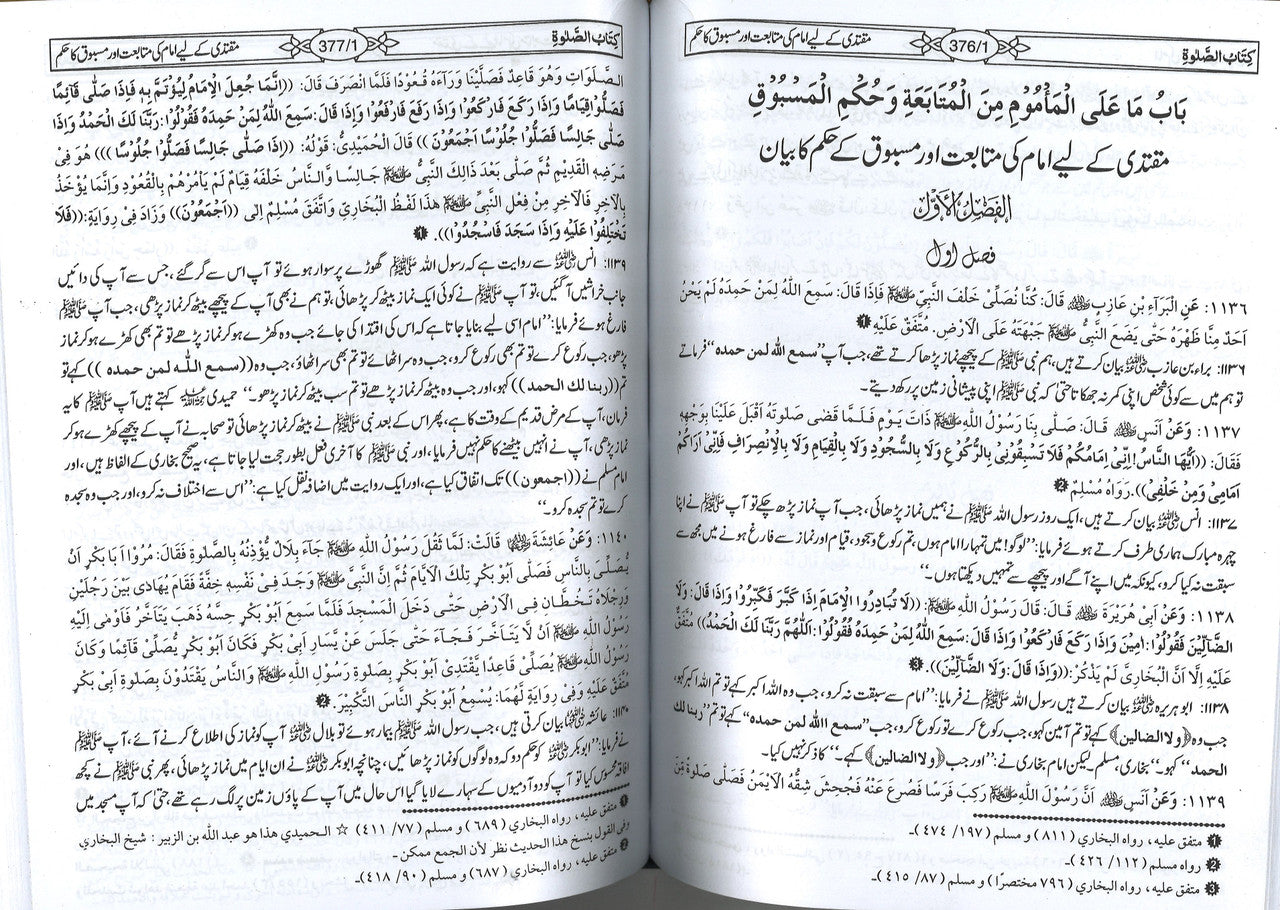 كِتَابُ الصَّلٰوةِ
376/1
مقتدی کے لیے امام کی متابعت اور مسبوق کا حکم
بَابُ مَا عَلَى الْمَأْمُوْمِ مِنَ الْمُتَابَعَةِ وَحُكْمِ الْمَسْبُوْقِ
مقتدی کے لیے امام کی متابعت اور مسبوق کے حکم کا بیان
الفَصْلُ الْاَوَّلُ
فصل اول
١١٣٦: عَنِ الْبَرَآءِ بْنِ عَازِبٍ ؓ قَالَ: كُنَّا نُصَلِّىْ خَلْفَ النَّبِيِّ ﷺ فَاِذَا قَالَ: سَمِعَ اللّٰهُ لِمَنْ حَمِدَهٗ لَمْ يَحْنُ
اَحَدٌ مِنَّا ظَهْرَهٗ حَتّٰى يَضَعَ النَّبِيُّ ﷺ جَبْهَتَهٗ عَلَى الْاَرْضِ. مُتَّفَقٌ عَلَيْهِ ❶
۱۱۳۶: براء بن عازب ؓ بیان کرتے ہیں، ہم نبی ﷺ کے پیچھے نماز پڑھا کرتے تھے، جب آپ ’’سمع اللہ لمن حمدہ‘‘ فرماتے
تو ہم میں سے کوئی شخص اپنی کمر نہ جھکاتا حتیٰ کہ نبی ﷺ اپنی پیشانی زمین پر رکھ دیتے۔
١١٣٧: وَعَنْ اَنَسٍ ؓ قَالَ: صَلّٰى بِنَا رَسُوْلُ اللّٰهِ ﷺ ذَاتَ يَوْمٍ فَلَمَّا قَضٰى صَلٰوتَهٗ اَقْبَلَ عَلَيْنَا بِوَجْهِهٖ
فَقَالَ: ((اَيُّهَا النَّاسُ! اِنِّىْ اِمَامُكُمْ فَلَا تَسْبِقُوْنِىْ بِالرُّكُوْعِ وَلَا بِالسُّجُوْدِ وَلَا بِالْقِيَامِ وَلَا بِالْاِنْصِرَافِ فَاِنِّىْ اَرَاكُمْ
اَمَامِىْ وَمِنْ خَلْفِىْ)). رَوَاهُ مُسْلِمٌ ❷
۱۱۳۷: انس ؓ بیان کرتے ہیں، ایک روز رسول اللہ ﷺ نے ہمیں نماز پڑھائی، جب آپ نماز پڑھ چکے تو آپ ﷺ نے اپنا
چہرہ مبارک ہماری طرف کرتے ہوئے فرمایا: ’’لوگو! میں تمہارا امام ہوں، تم رکوع و سجود، قیام اور نماز سے فارغ ہونے میں مجھ سے
سبقت نہ کیا کرو، کیونکہ میں اپنے آگے اور پیچھے سے تمہیں دیکھتا ہوں۔‘‘
١١٣٨: وَعَنْ اَبِىْ هُرَيْرَةَ ؓ قَالَ: قَالَ رَسُوْلُ اللّٰهِ ﷺ: ((لَا تُبَادِرُوا الْاِمَامَ اِذَا كَبَّرَ فَكَبِّرُوْا وَاِذَا قَالَ: وَلَا
الضَّآلِّيْنَ فَقُوْلُوْا: اٰمِيْنَ وَاِذَا رَكَعَ فَارْكَعُوْا وَاِذَا قَالَ: سَمِعَ اللّٰهُ لِمَنْ حَمِدَهٗ فَقُوْلُوْا: اَللّٰهُمَّ رَبَّنَا لَكَ الْحَمْدُ)) مُتَّفَقٌ
عَلَيْهِ اِلَّا اَنَّ الْبُخَارِىَّ لَمْ يَذْكُرْ: ((وَاِذَا قَالَ: وَلَا الضَّآلِّيْنَ)). ❸
۱۱۳۸: ابو ہریرہ ؓ بیان کرتے ہیں رسول اللہ ﷺ نے فرمایا: ’’امام سے سبقت نہ کرو، جب وہ اللہ اکبر کہے تو تم اللہ اکبر کہو،
جب وہ ﴿ولا الضالین﴾ کہے تو تم آمین کہو، جب رکوع کرے تو رکوع کرو، جب ’’سمع اللہ لمن حمدہ‘‘ کہے تو تم ’’ربنا لک
الحمد‘‘ کہو۔‘‘ بخاری، مسلم لیکن امام بخاری نے: ’’اور جب ﴿ولا الضالین﴾ کہے۔‘‘ کا ذکر نہیں کیا۔
١١٣٩: وَعَنْ اَنَسٍ ؓ اَنَّ رَسُوْلَ اللّٰهِ ﷺ رَكِبَ فَرَسًا فَصُرِعَ عَنْهُ فَجُحِشَ شِقُّهُ الْاَيْمَنُ فَصَلّٰى صَلٰوةً مِّنَ
❶ متفق عليه ، رواه البخاري (٨١١) و مسلم (١٩٧/ ٤٧٤)۔
❷ رواه مسلم (١١٢/ ٤٢٦)۔
❸ متفق عليه ، رواه البخاري (٧٩٦ مختصرًا) و مسلم (٨٧/ ٤١٥)۔
كِتَابُ الصَّلٰوةِ
377/1
مقتدی کے لیے امام کی متابعت اور مسبوق کا حکم
الصَّلَوَاتِ وَهُوَ قَاعِدٌ فَصَلَّيْنَا وَرَآءَهٗ قُعُوْدًا فَلَمَّا انْصَرَفَ قَالَ: ((اِنَّمَا جُعِلَ الْاِمَامُ لِيُؤْتَمَّ بِهٖ فَاِذَا صَلّٰى قَائِمًا
فَصَلُّوْا قِيَامًا وَاِذَا رَكَعَ فَارْكَعُوْا وَاِذَا رَفَعَ فَارْفَعُوْا وَاِذَا قَالَ: سَمِعَ اللّٰهُ لِمَنْ حَمِدَهٗ فَقُوْلُوْا: رَبَّنَا لَكَ الْحَمْدُ وَاِذَا
صَلّٰى جَالِسًا فَصَلُّوْا جُلُوْسًا اَجْمَعُوْنَ)) قَالَ الْحُمَيْدِىُّ: قَوْلُهٗ: ((اِذَا صَلّٰى جَالِسًا فَصَلُّوْا جُلُوْسًا)) هُوَ فِىْ
مَرَضِهِ الْقَدِيْمِ ثُمَّ صَلّٰى بَعْدَ ذَالِكَ النَّبِىُّ ﷺ جَالِسًا وَالنَّاسُ خَلْفَهٗ قِيَامٌ لَمْ يَاْمُرْهُمْ بِالْقُعُوْدِ وَاِنَّمَا يُؤْخَذُ
بِالْاٰخِرِ فَالْاٰخِرِ مِنْ فِعْلِ النَّبِىِّ ﷺ هٰذَا لَفْظُ الْبُخَارِىِّ وَاتَّفَقَ مُسْلِمٌ اِلٰى ((اَجْمَعُوْنَ)) وَزَادَ فِىْ رِوَايَةٍ: ((فَلَا
تَخْتَلِفُوْا عَلَيْهِ وَاِذَا سَجَدَ فَاسْجُدُوْا)). ❶
۱۱۳۹: انس ؓ سے روایت ہے کہ رسول اللہ ﷺ گھوڑے پر سوار ہوئے تو آپ اس سے گر گئے، جس سے آپ کی دائیں
جانب خراشیں آ گئیں، تو آپ ﷺ نے کوئی ایک نماز بیٹھ کر پڑھائی، تو ہم نے بھی آپ کے پیچھے بیٹھ کر نماز پڑھی، جب آپ ﷺ
فارغ ہوئے فرمایا: ’’امام اسی لیے بنایا جاتا ہے کہ اس کی اقتدا کی جائے جب وہ کھڑے ہو کر نماز پڑھے تو تم بھی کھڑے ہو کر نماز
پڑھو، جب رکوع کرے تو تم بھی رکوع کرو، جب وہ سر اٹھائے تو تم بھی سر اٹھاؤ، جب وہ ((سمع الله لمن حمده)) کہے تو
تم ((ربنا لك الحمد)) کہو، اور جب وہ بیٹھ کر نماز پڑھے تو تم سب بیٹھ کر نماز پڑھو۔‘‘ حمیدی ؒ کہتے ہیں آپ ﷺ کا یہ
فرمان، آپ کے مرض قدیم کے وقت کا ہے، پھر اس کے بعد نبی ﷺ نے بیٹھ کر نماز پڑھائی تو صحابہ نے آپ کے پیچھے کھڑے ہو کر
نماز پڑھی، آپ نے انہیں بیٹھنے کا حکم نہیں فرمایا، اور نبی ﷺ کا آخری فعل بطور حجت لیا جاتا ہے، یہ صحیح بخاری کے الفاظ ہیں، اور
امام مسلم نے ((اجمعون)) تک اتفاق کیا ہے، اور ایک روایت میں اضافہ نقل کیا ہے: ’’اس سے اختلاف نہ کرو، اور جب وہ سجدہ
کرے تو تم سجدہ کرو۔‘‘
١١٤٠: وَعَنْ عَائِشَةَ ؓ قَالَتْ: لَمَّا ثَقُلَ رَسُوْلُ اللّٰهِ ﷺ جَآءَ بِلَالٌ يُؤْذِنُهٗ بِالصَّلٰوةِ فَقَالَ: مُرُوْا اَبَا بَكْرٍ اَنْ
يُّصَلِّىَ بِالنَّاسِ فَصَلّٰى اَبُوْ بَكْرٍ تِلْكَ الْاَيَّامَ ثُمَّ اِنَّ النَّبِىَّ ﷺ وَجَدَ فِىْ نَفْسِهٖ خِفَّةً فَقَامَ يُهَادٰى بَيْنَ رَجُلَيْنِ
وَرِجْلَاهُ تَخُطَّانِ فِى الْاَرْضِ حَتّٰى دَخَلَ الْمَسْجِدَ فَلَمَّا سَمِعَ اَبُوْ بَكْرٍ حِسَّهٗ ذَهَبَ يَتَاَخَّرُ فَاَوْمٰى اِلَيْهِ
رَسُوْلُ اللّٰهِ ﷺ اَنْ لَّا يَتَاَخَّرَ فَجَآءَ حَتّٰى جَلَسَ عَنْ يَّسَارِ اَبِىْ بَكْرٍ فَكَانَ اَبُوْ بَكْرٍ يُّصَلِّىْ قَآئِمًا وَكَانَ
رَسُوْلُ اللّٰهِ ﷺ يُصَلِّىْ قَاعِدًا يَقْتَدِىْ اَبُوْ بَكْرٍ بِصَلٰوةِ رَسُوْلِ اللّٰهِ ﷺ وَالنَّاسُ يَقْتَدُوْنَ بِصَلٰوةِ اَبِىْ بَكْرٍ
مُتَّفَقٌ عَلَيْهِ وَفِىْ رِوَايَةٍ لَهُمَا: يُسْمِعُ اَبُوْ بَكْرٍ النَّاسَ التَّكْبِيْرَ. ❷
۱۱۴۰: عائشہ ؓ بیان کرتی ہیں، جب رسول اللہ ﷺ بیمار ہوئے تو بلال ؓ آپ کو نماز کی اطلاع کرنے آئے، آپ ﷺ
نے فرمایا: ’’ابوبکر ؓ کو حکم دو کہ وہ لوگوں کو نماز پڑھائیں، چنانچہ ابوبکر ؓ نے ان ایام میں نماز پڑھائی، پھر نبی ﷺ نے کچھ
افاقہ محسوس کیا تو آپ کو دو آدمیوں کے سہارے لایا گیا اس حال میں آپ کے پاؤں زمین پر لگ رہے تھے، حتیٰ کہ آپ مسجد میں
❶ متفق عليه ، رواه البخاري (٦٨٩) و مسلم (٧٧/ ٤١١) ☆ الحميدي هذا هو عبد الله بن الزبير : شيخ البخاري
وفى القول بنسخ هذا الحديث نظر لأن الجمع ممكن۔
❷ متفق عليه ، رواه البخاري (٦٨٧) و مسلم (٩٠/ ٤١٨)۔